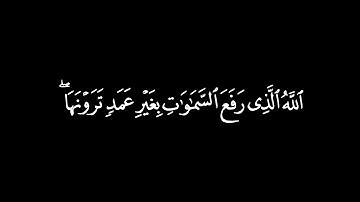 ٱللَّهُ ٱلَّذِى رَفَعَ ٱلسَّمَـٰوَٰتِ بِغَيْرِ عَمَدٍ تَرَوْنَهَا ۖ